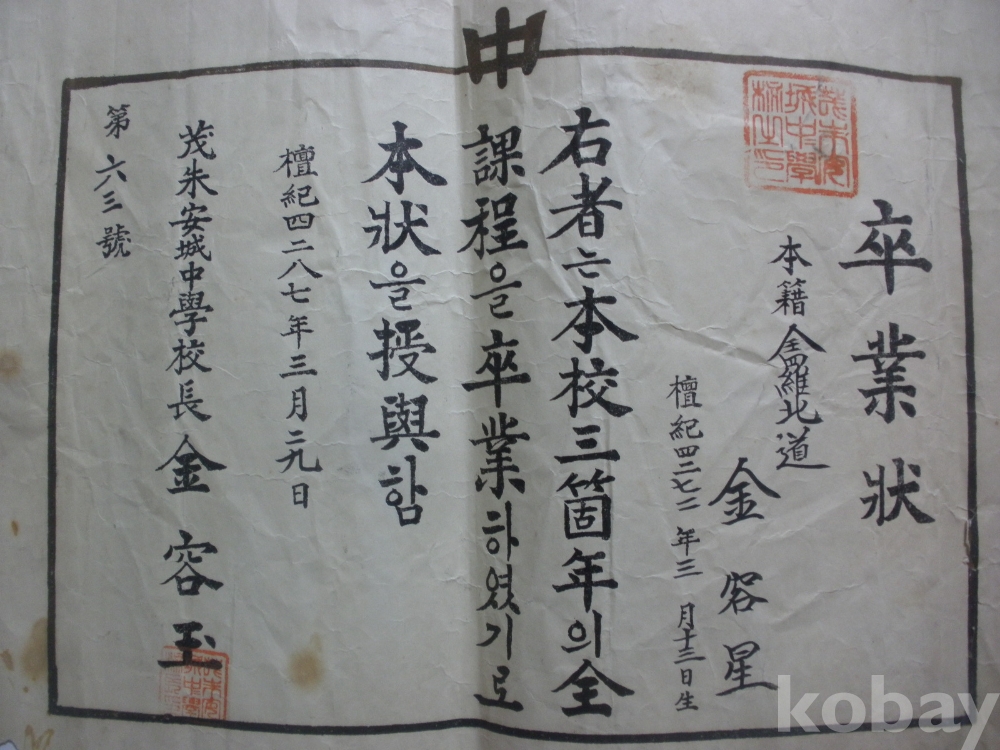 中
卒業狀
本籍 全羅北道
金容星
檀紀四二七二年三月十三日生
右者는本校三箇年의全
課程을卒業하였기로
本狀을授與함
檀紀四二八七年三月二九日
茂朱安城中學校長 金容玉
第六三號
kobay